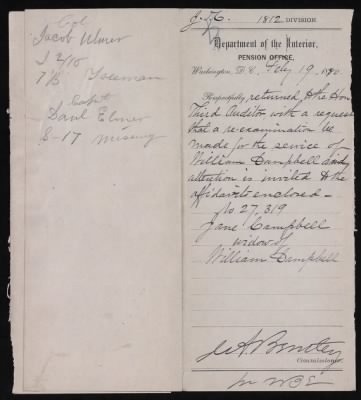 Col
Jacob Ulmer
J 2/10
7/B Yoeman
Capt
Danl Elmer
8-17 missing
1812 DIVISION.
Department of the Interior,
PENSION OFFICE,
Washington, D.C., Feby 19, 1880.
Respectfully returned to the Hon
Third Auditor with a request
that a re-examination be
made for the service of
William Campbell and
attention is invited to the
affidavits enclosed -
No 27,319
Jane Campbell
widow of
William Campbell
J. A. Bentley
Commissioner.